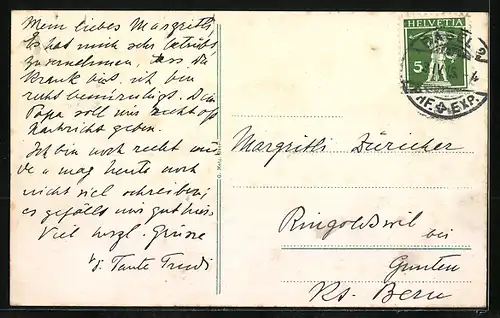 Mein liebes Margritli
Es hat mich sehr betrübt
zu vernehmen, dass Du
krank bist. ich bin
recht beunruhigt. Dein
Papa soll mir recht oft
Nachricht geben.
Ich bin noch recht mü-
de u mag heute noch
nicht viel schreiben;
es gefällt mir gut hier.
Viel herzl. Grüsse
v. Tante Trudi
HELVETIA
5
BASEL 2
BRF. EXP.
Margritli Züricher
Ringoldswil
bei
Gunten
Kt. Bern